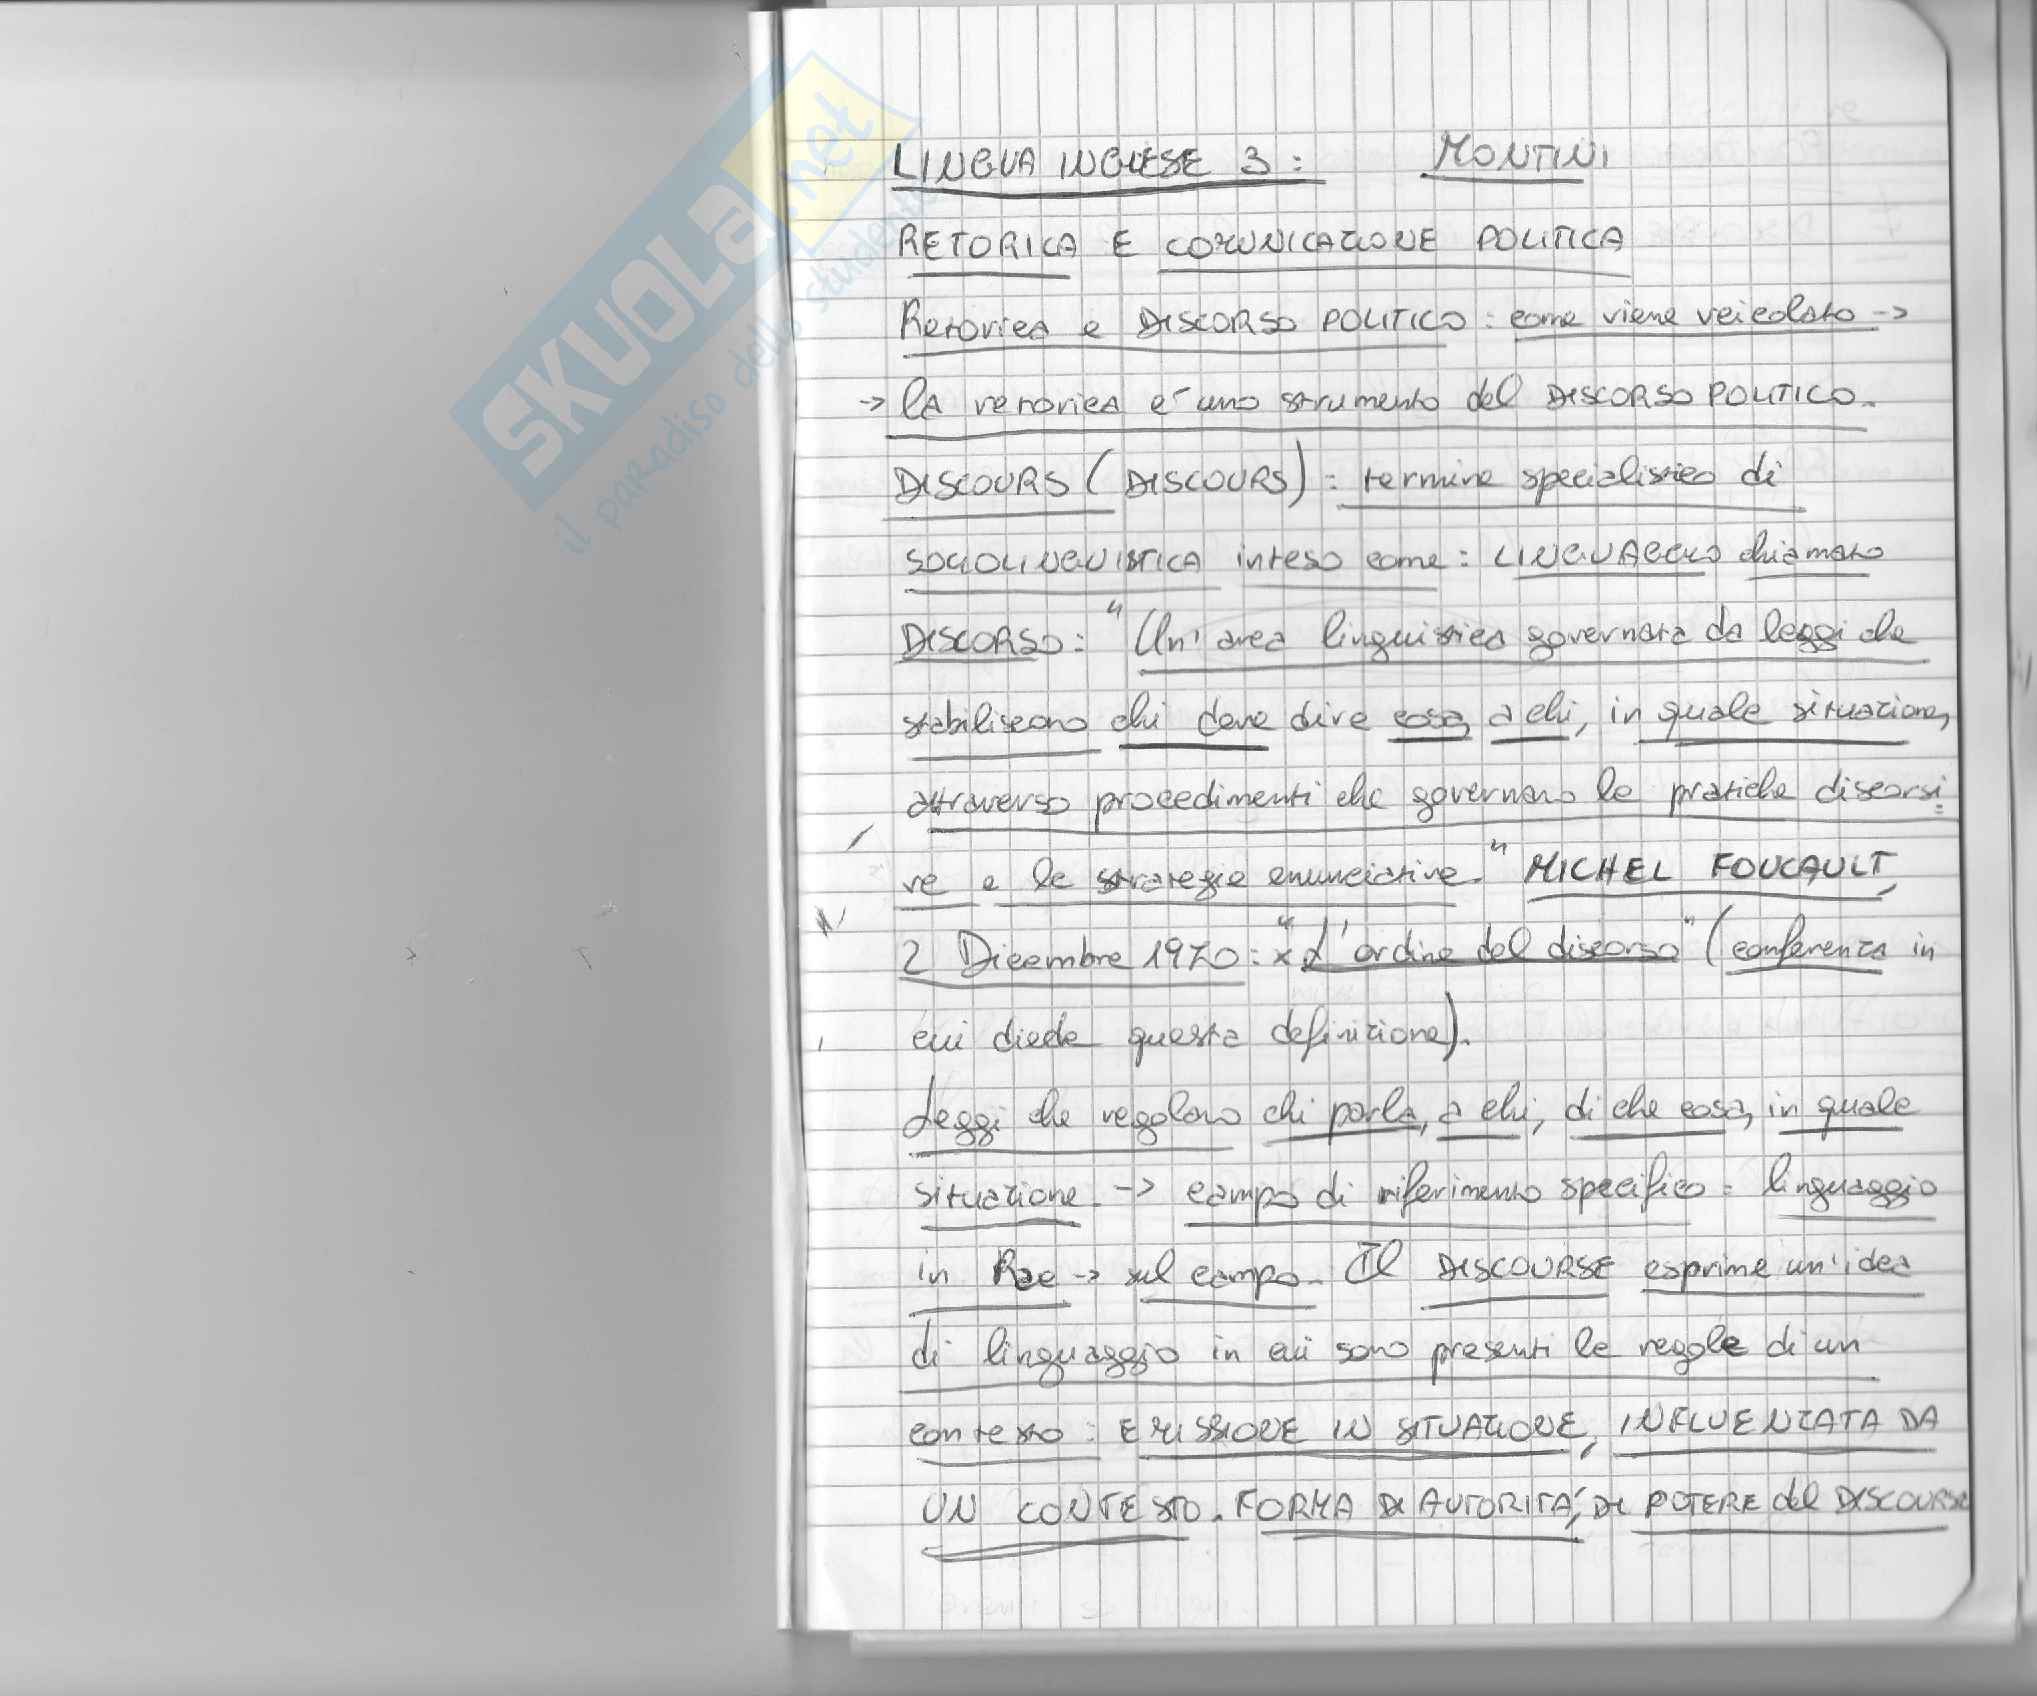 SKUOLA.net
il paradiso dello studente
LINGUA INGLESE 3: MONTINI
RETORICA E COMUNICAZIONE POLITICA
Retorica e DISCORSO POLITICO: come viene veicolato ->
-> la retorica e' uno strumento del DISCORSO POLITICO.
DISCOURS (DISCOURS): termine specialistico di
SOCIOLINGUISTICA inteso come: LINGUAGGIO chiamato
DISCORSO: "Un'area linguistica governata da leggi che
stabiliscono chi deve dire cosa, a chi, in quale situazione,
attraverso procedimenti che governano le pratiche discorsi=
ve e le strategie enunciative." MICHEL FOUCAULT,
2 Dicembre 1970: "L'ordine del discorso" (conferenza in
cui diede questa definizione).
Leggi che regolano chi parla, a chi, di che cosa, in quale
situazione -> campo di riferimento specifico = linguaggio
in -> sul campo. Il DISCOURSE esprime un'idea
di linguaggio in cui sono presenti le regole di un
contesto: EMISSIONE IN SITUAZIONE, INFLUENZATA DA
UN CONTESTO. FORMA DI AUTORITA', DI POTERE del DISCOURSE